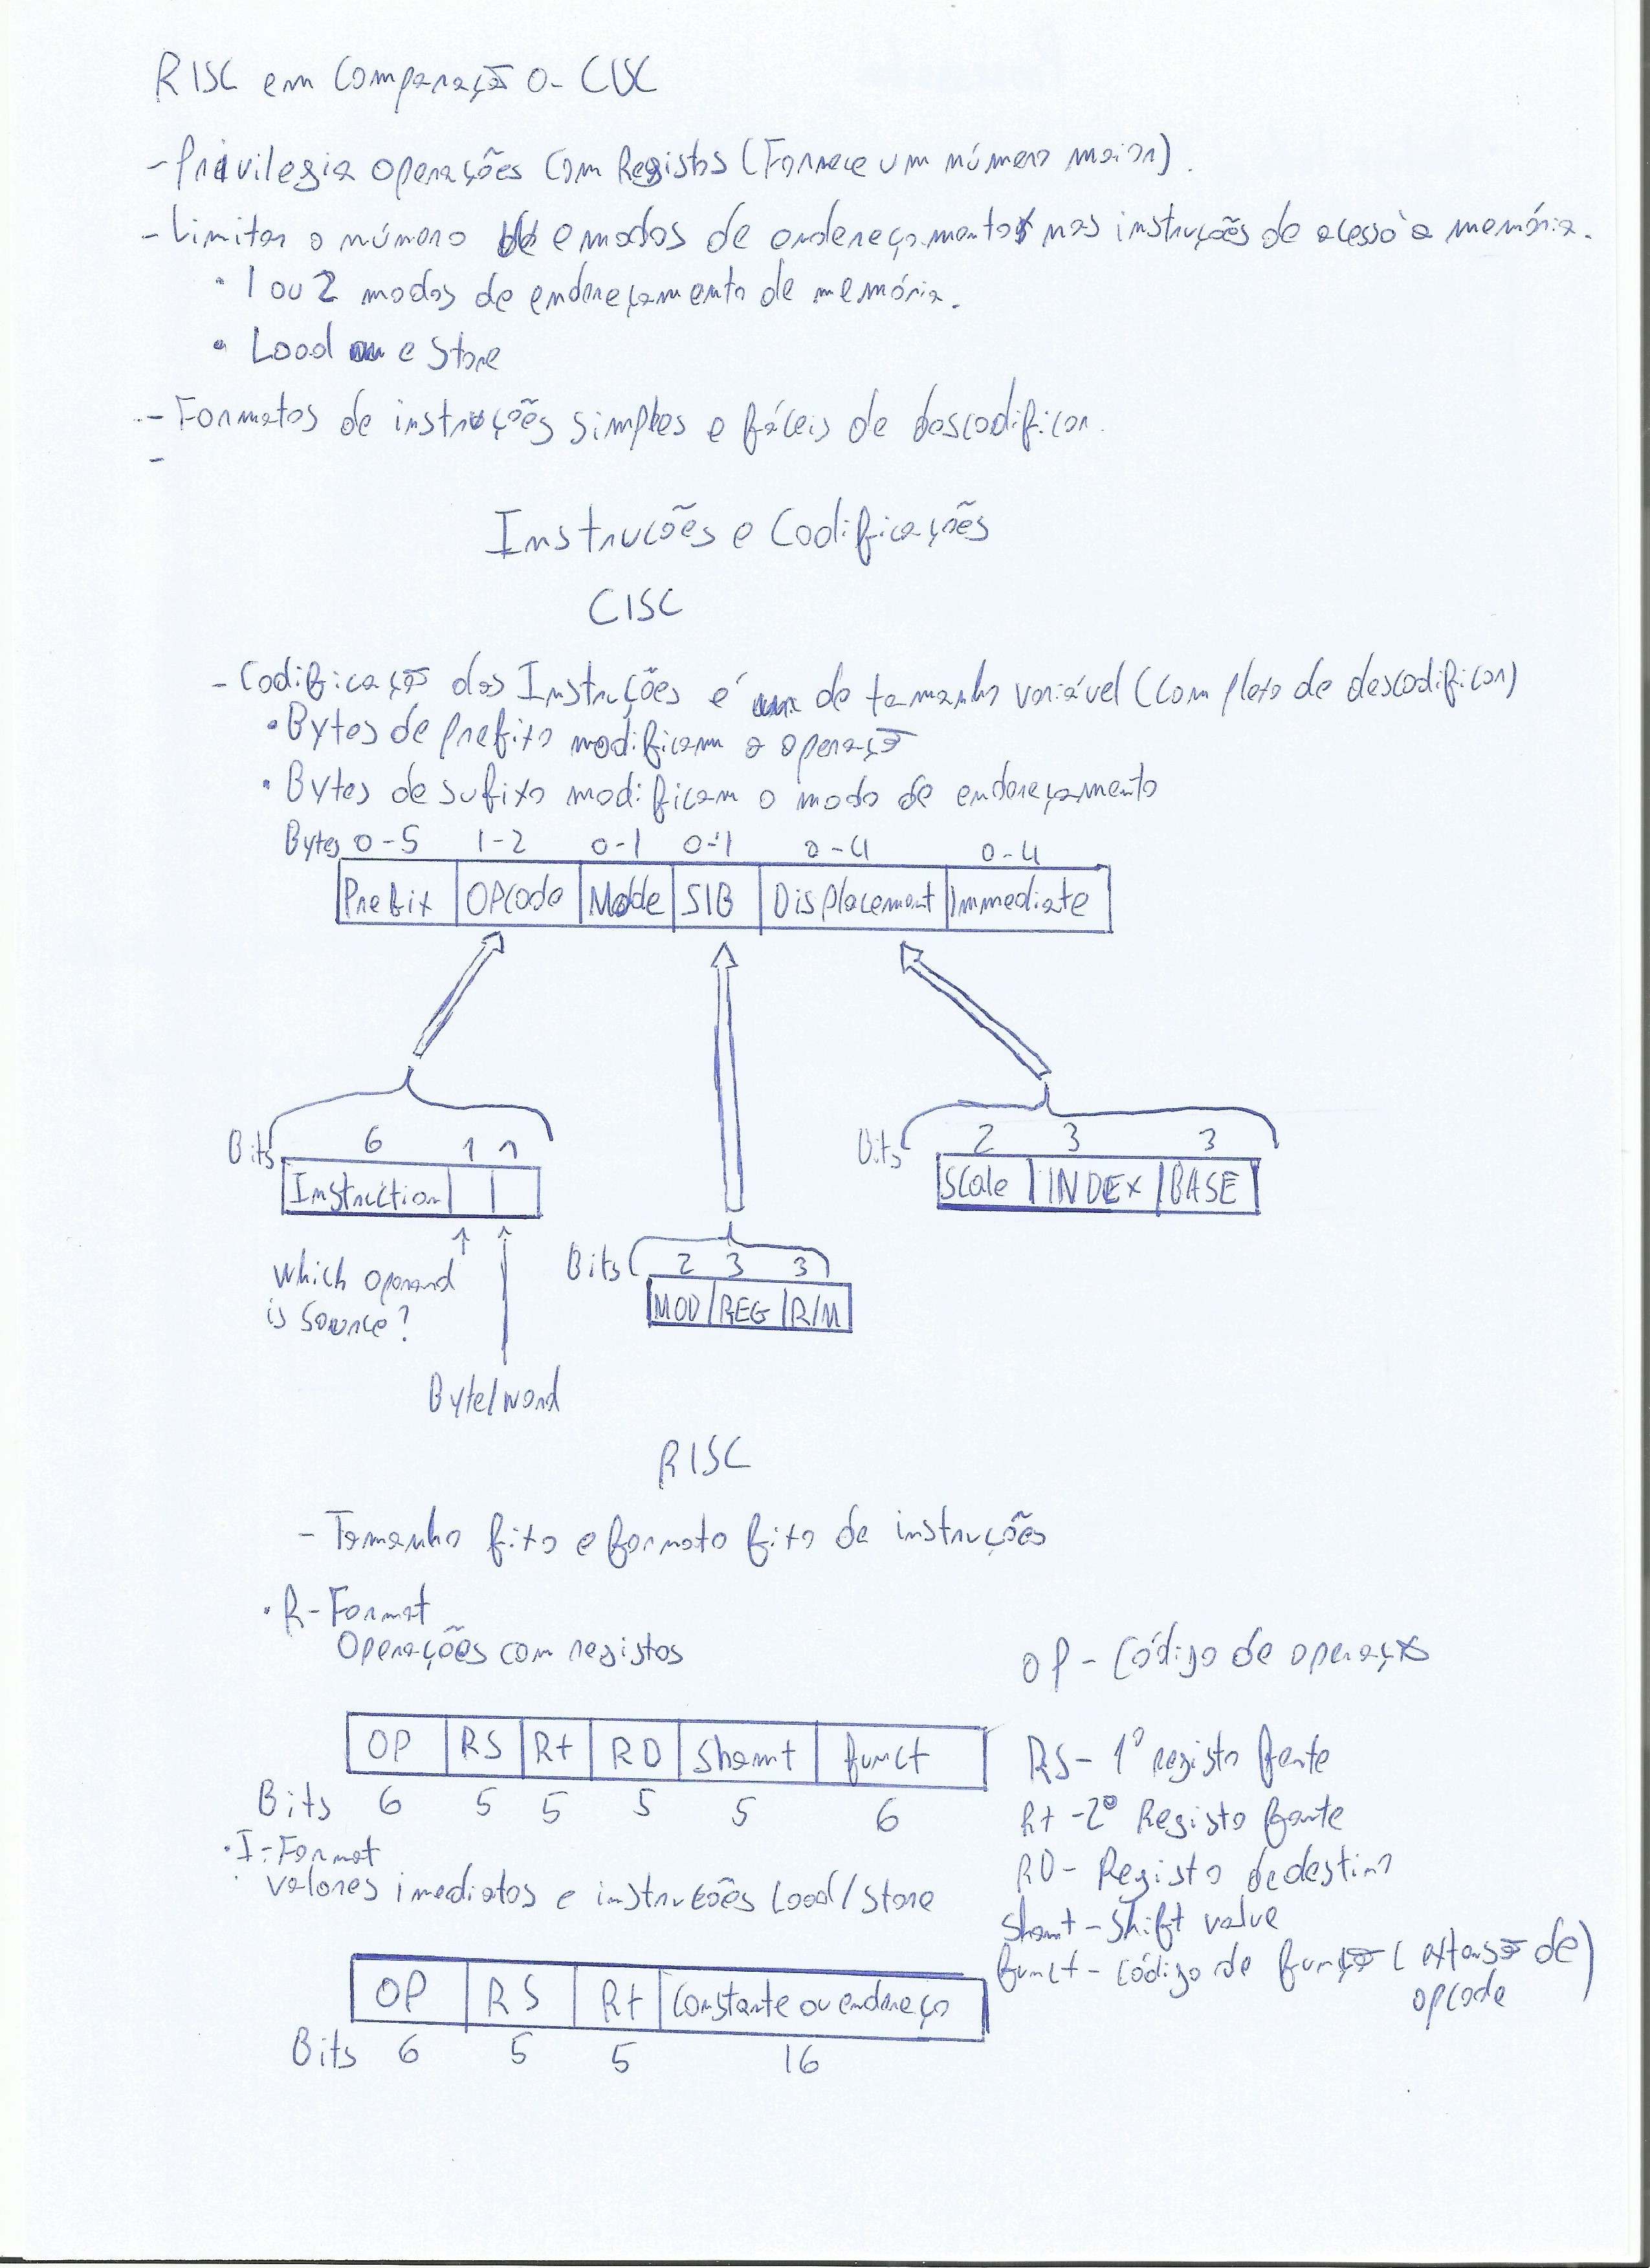 RISC em Comparação a CISC
- Privilegia Operações Com Registos (Fornece um número maior).
- Limitar o número e modos de endereçamento nas instruções de acesso à memória.
• 1 ou 2 modos de endereçamento de memória.
• Load e Store
- Formatos de instruções simples e fáceis de descodificar.
-
Instrucões e Codificações
CISC
- Codificação das Instruções é de tamanho variável (Complexo de descodificar)
• Bytes de prefixo modificam a operação
• Bytes de sufixo modificam o modo de endereçamento
Bytes 0-5 1-2 0-1 0-1 0-4 0-4
Prefix OPCode Mode SIB Displacement Immediate
Bits 6 1 1
Instruction
Which operand
is source?
Byte/word
Bits 2 3 3
MOD REG R/M
Bits 2 3 3
Scale INDEX BASE
RISC
- Tamanho fixo e formato fixo de instruções
• R-Format
Operações com registos
OP RS Rt RD Shamt funct
Bits 6 5 5 5 5 6
OP - Código de operação
RS - 1º registo fonte
Rt - 2º Registo fonte
RD - Registo de destino
Shamt - Shift value
funct - código de função (extensão de
opcode)
• I-Format
Valores imediatos e instruções Load/Store
OP RS Rt Constante ou endereço
Bits 6 5 5 16